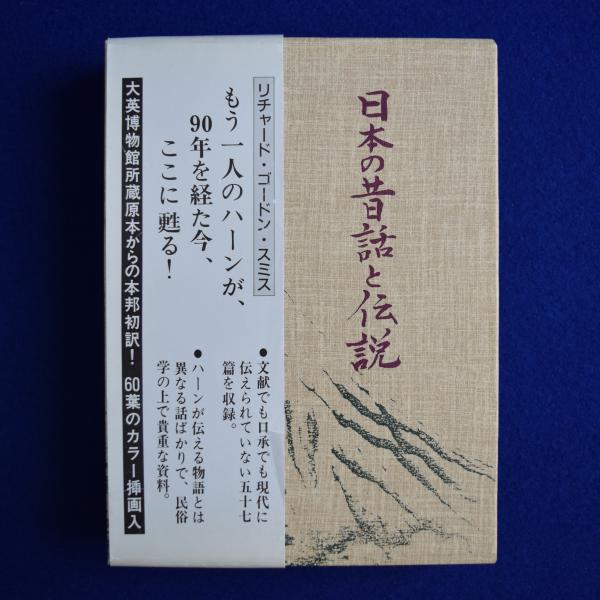 日本の昔話と伝説
リチャード・ゴードン・スミス
もう一人のハーンが、
90年を経た今、
ここに甦る！
●文献でも口承でも現代に
伝えられていない五十七
篇を収録。
●ハーンが伝える物語とは
異なる話ばかりで、民俗
学の上で貴重な資料。
大英博物館所蔵原本からの本邦初訳！ 60葉のカラー挿画入